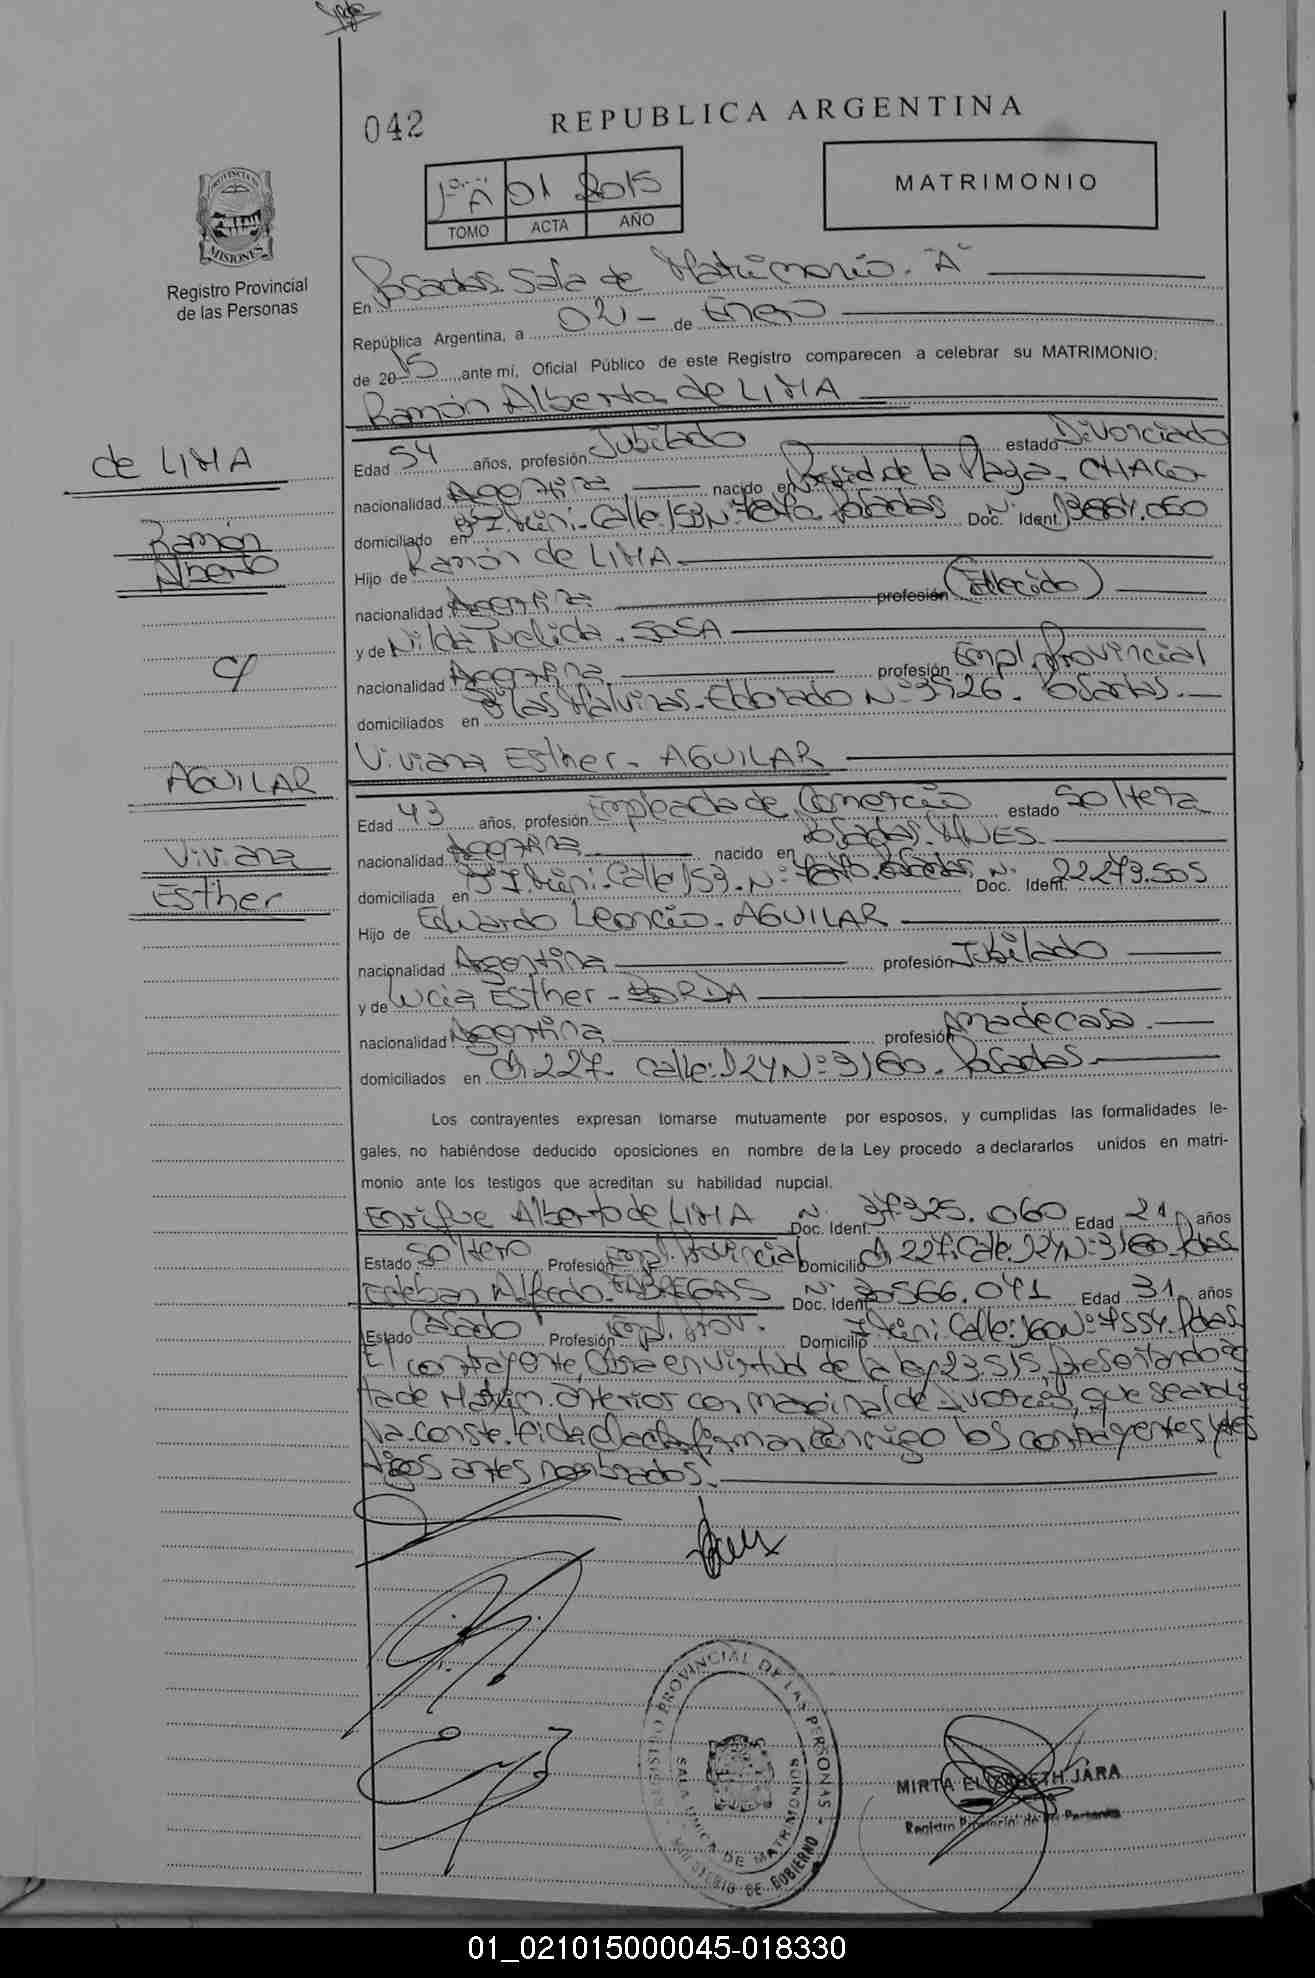 042
REPUBLICA ARGENTINA
1º "A" 01 2015
TOMO ACTA AÑO
MATRIMONIO
PROVINCIA DE
MISIONES
Registro Provincial
de las Personas
En Posadas. Sala de Matrimonio. "A"
República Argentina, a 02 - de Enero
de 2015, ante mí, Oficial Público de este Registro comparecen a celebrar su MATRIMONIO:
Ramón Alberto de LIMA
de LIMA
Ramón
Alberto
c/
AGUILAR
Viviana
Esther
Edad 54 años, profesión Jubilado estado Divorciado
nacionalidad Argentina nacido en Presid. de la Plaza - CHACO
domiciliado en Calle: 153 Nº Posadas Doc. Ident. Nº
Hijo de Ramón de LIMA
nacionalidad Argentina profesión (Fallecido)
y de Nilda Nelida - SOSA
nacionalidad Argentina profesión Empl. Provincial
domiciliados en Bº Las Malvinas - Eldorado Nº 3926 - Posadas.
Viviana Esther - AGUILAR
Edad 43 años, profesión Empleada de Comercio estado Soltera
nacionalidad Argentina nacido en Posadas. MNES.
domiciliada en Calle 153 - Nº Posadas Doc. Ident. Nº 22.273.505
Hijo de Eduardo Leoncio - AGUILAR
nacionalidad Argentina profesión Jubilado
y de Lucia Esther - BORDA
nacionalidad Argentina profesión Ama de casa.
domiciliados en Ch 227 - Calle: 124 Nº 3160 - Posadas
Los contrayentes expresan tomarse mutuamente por esposos, y cumplidas las formalidades le-
gales, no habiéndose deducido oposiciones en nombre de la Ley procedo a declararlos unidos en matri-
monio ante los testigos que acreditan su habilidad nupcial.
Enrique Alberto de LIMA Doc. Ident. Nº 37.325.060 Edad 21 años
Estado Soltero Profesión Empl. Provincial Domicilio Ch 227. Calle 124 Nº 3160 - Pdas
Esteban Alfredo FABREGAS Doc. Ident. Nº 30566.041 Edad 31 años
Estado Casado Profesión Empl. Prov. Domicilio Calle: 160 Nº 7554. Pdas
El contrayente, obra en virtud de la ley 23.515, presentando ac
ta de Matrim. anterior con marginal de Divorcio, que se archi
va. conste. leida el acta firman conmigo los contrayentes y tes
tigos antes nombrados.
REGISTRO PROVINCIAL DE LAS PERSONAS
SALA UNICA DE MATRIMONIOS
MINISTERIO DE GOBIERNO
MIRTA ELIZABETH JARA
Registro Provincial de las Personas
01_021015000045-018330